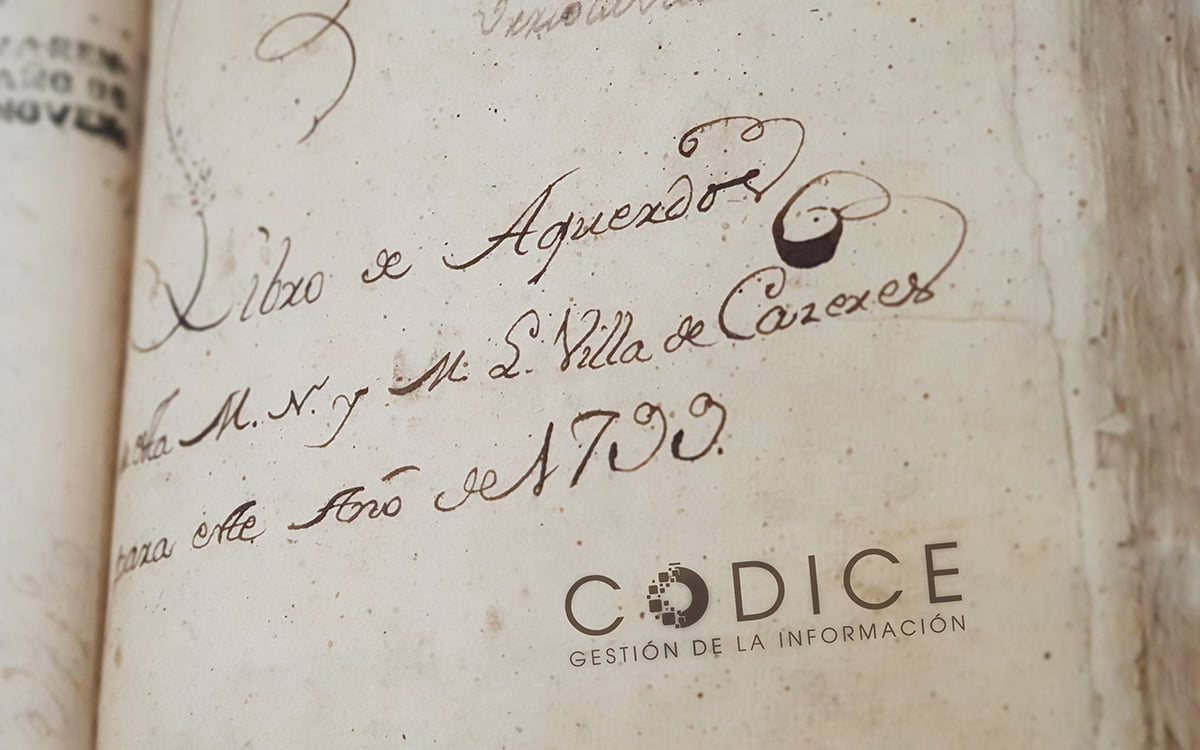 AÑO DE
Libro de Aquerdos
esta M. N. y M. L. Villa de Cazeres
para este Año de 1799.
CODICE
GESTIÓN DE LA INFORMACIÓN